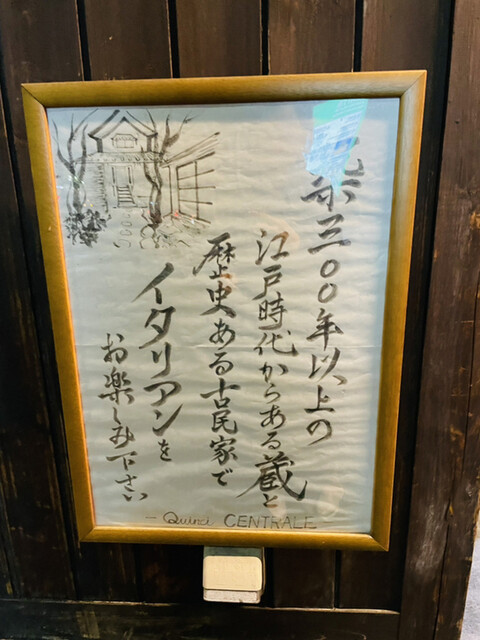 築三〇〇年以上の
江戸時代からある蔵と
歴史ある古民家で
イタリアンを
お楽しみ下さい
- Quinci CENTRALE -